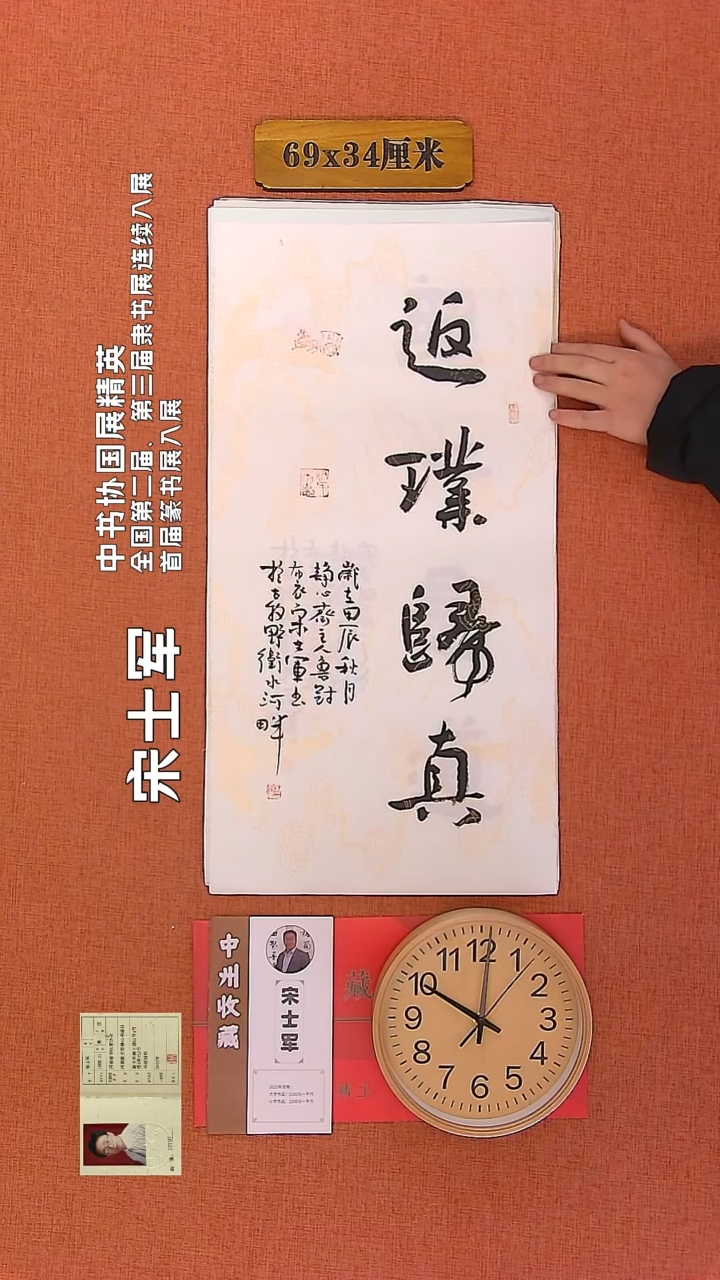 69x34厘米
返
璞
歸
真
歲在甲辰秋月
靜心齋主人魯对
布衣宋士軍书
於古牧野衛水河
畔
中书协国展精英
全国第二届、第三届隶书展连续入展
首届篆书展入展
宋士军
中国收藏
宋士军
藏
12
1
2
3
4
5
6
7
8
9
10
11